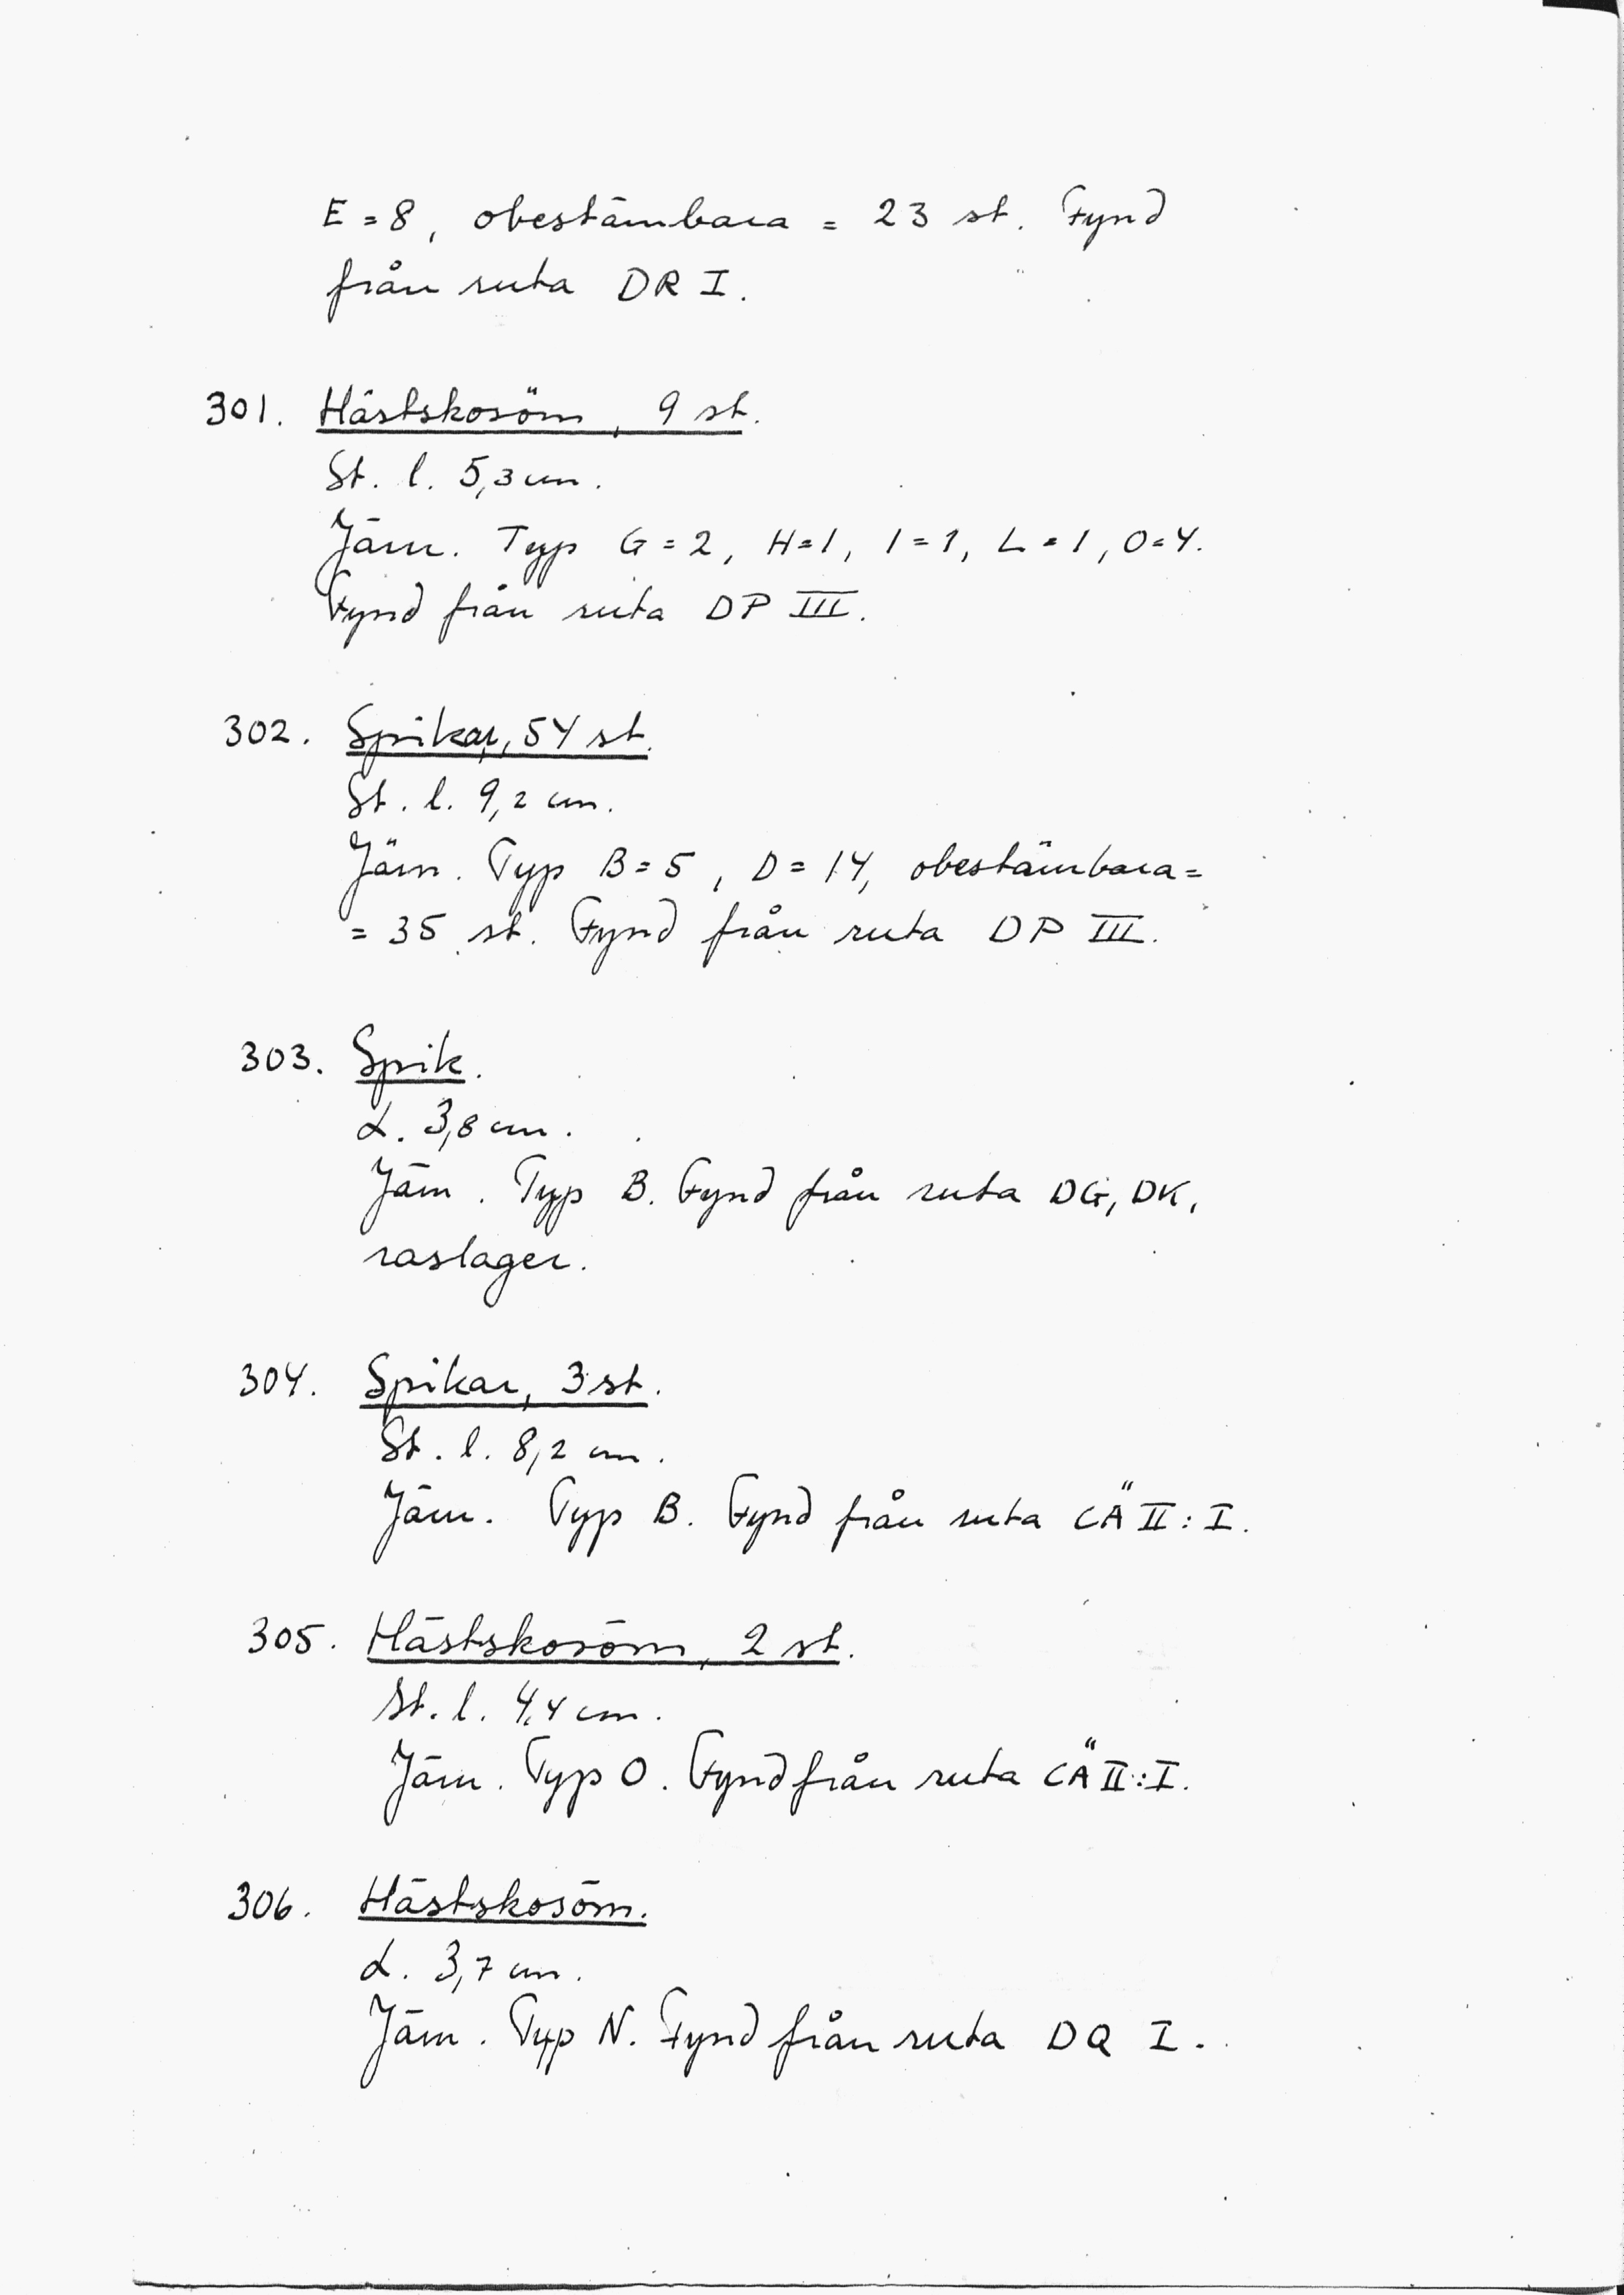 E = 8, obestämbara = 23 st. Fynd
från ruta DR I.
301. Hästskosöm, 9 st.
St. l. 5,3 cm.
Järn. Typ G = 2, H = 1, I = 1, L = 1, O = 4.
Fynd från ruta DP III.
302. Spikar, 54 st.
St. l. 9,2 cm.
Järn. Typ B = 5, D = 14, obestämbara =
= 35 st. Fynd från ruta DP III.
303. Spik.
L. 3,8 cm.
Järn. Typ B. Fynd från ruta DG, DK,
raslager.
304. Spikar, 3 st.
St. l. 8,2 cm.
Järn. Typ B. Fynd från ruta CÄ II : I.
305. Hästskosöm, 2 st.
St. l. 4,4 cm.
Järn. Typ O. Fynd från ruta CÄ II : I.
306. Hästskosöm.
L. 3,7 cm.
Järn. Typ N. Fynd från ruta DQ I.